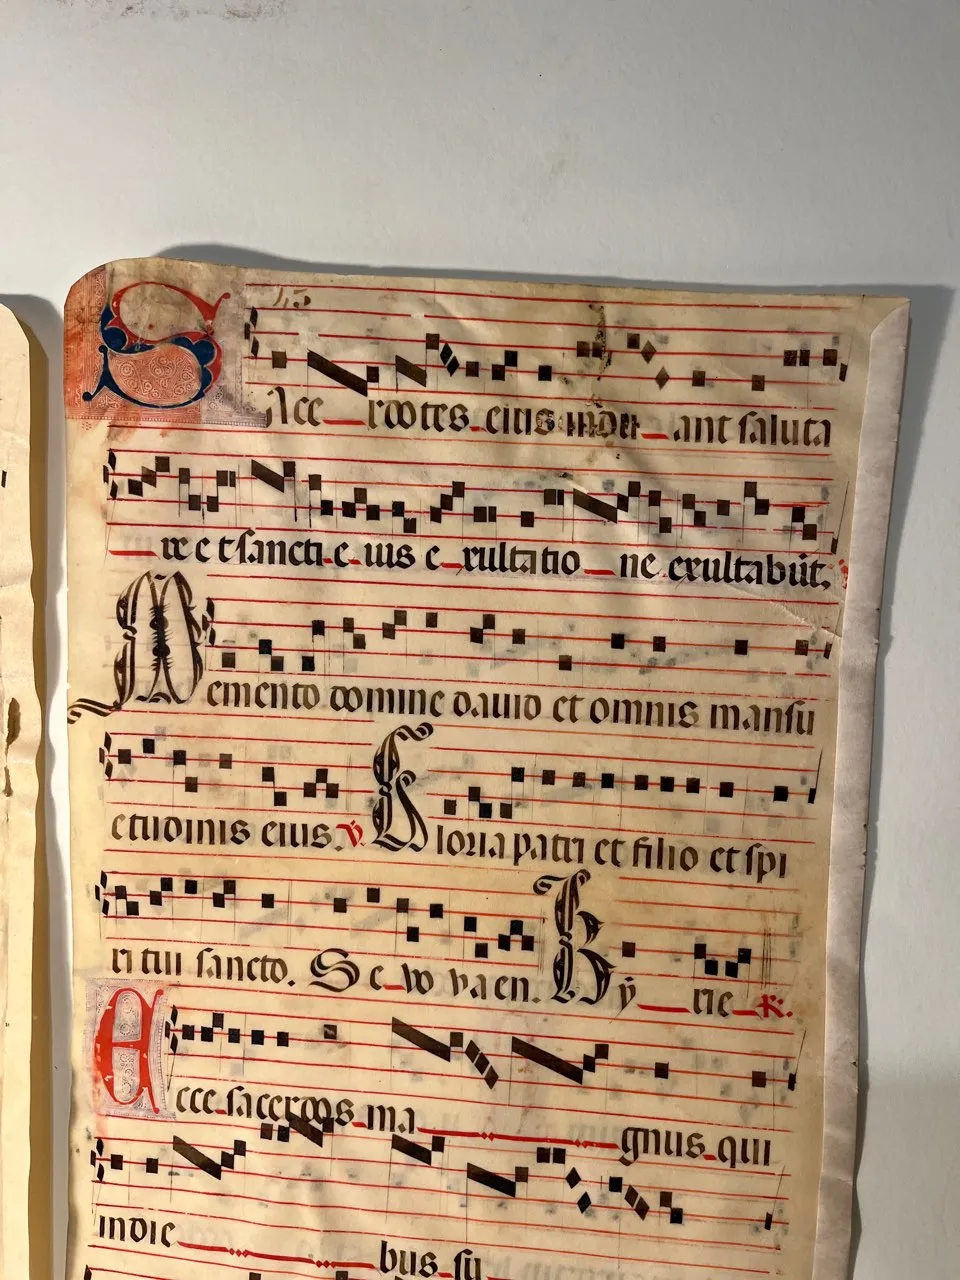 Sace rdotes eius indu ant saluta
re et sancti e ius e xultatio ne exultabūt.
Memento domine dauid et omnis mansu
etudinis eius. ℣. Gloria patri et filio et spi
ri tui sancto. Se vo va en. Ky rie ℟.
Ecce sacerdos ma gnus qui
indie bus su